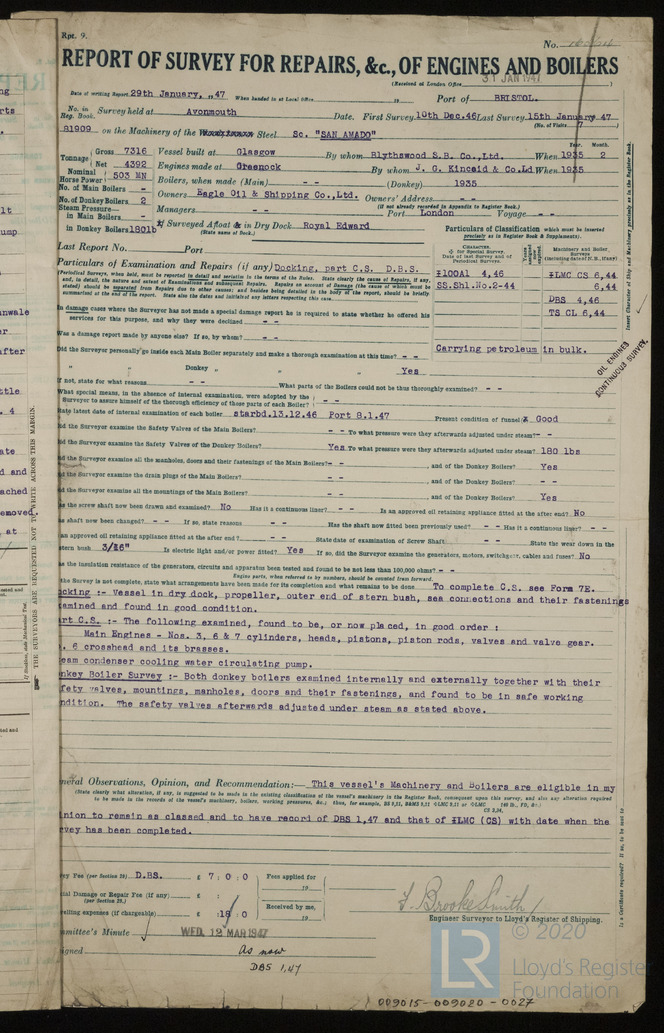 Rpt. 9.
No.
REPORT OF SURVEY FOR REPAIRS, &c., OF ENGINES AND BOILERS
(Received at London Office 31 JAN 1947 )
Date of writing Report 29th January, 1947 When handed in at Local Office 19 Port of BRISTOL.
No. in Reg. Book. Survey held at Avonmouth Date. First Survey 10th Dec.46 Last Survey 15th January 1947
(No. of Visits 7 )
81909 on the Machinery of the Steel Sc. "SAN AMADO"
Tonnage Gross 7316 Vessel built at Glasgow By whom Blythswood S.B. Co.,Ltd. When 1935 Year. 2 Month.
Net 4392 Engines made at Greenock By whom J. G. Kincaid & Co.Ld When 1935
Nominal Horse Power 503 MN Boilers, when made (Main) - - (Donkey) 1935
No. of Main Boilers - Owners Eagle Oil & Shipping Co.,Ltd. Owners' Address
No. of Donkey Boilers 2 (If not already recorded in Appendix to Register Book.)
Steam Pressure in Main Boilers - Managers - - Port London Voyage - -
in Donkey Boilers 180lb If Surveyed Afloat & in Dry Dock Royal Edward
(State name of Dock.)
Particulars of Classification (which must be inserted precisely as in Register Book & Supplements).
Last Report No. Port
Particulars of Examination and Repairs (if any) Docking, part C.S. D.B.S.
100A1 4,46 LMC CS 6,44
SS.Shl.No.2-44 6,44
DBS 4,46
TS CL 6,44
Carrying petroleum in bulk.
OIL ENGINES
CONTINUOUS SURVEY.
In damage cases where the Surveyor has not made a special damage report he is required to state whether he offered his services for this purpose, and why they were declined - -
Was a damage report made by anyone else? If so, by whom? - -
Did the Surveyor personally go inside each Main Boiler separately and make a thorough examination at this time? - -
" " Donkey " " " Yes
If not, state for what reasons - - What parts of the Boilers could not be thoroughly examined? - -
What special means, in the absence of internal examination, were adopted by the Surveyor to assure himself of the thorough efficiency of those parts of each Boiler? - -
State latest date of internal examination of each boiler starbd.13.12.46 Port 8.1.47 Present condition of funnel Good
Did the Surveyor examine the Safety Valves of the Main Boilers? - - To what pressure were they afterwards adjusted under steam? - -
Did the Surveyor examine the Safety Valves of the Donkey Boilers? Yes To what pressure were they afterwards adjusted under steam? 180 lbs
Did the Surveyor examine all the manholes, doors and their fastenings of the Main Boilers? - - , and of the Donkey Boilers? Yes
Did the Surveyor examine the drain plugs of the Main Boilers? - - , and of the Donkey Boilers? - -
Did the Surveyor examine all the mountings of the Main Boilers? - - , and of the Donkey Boilers? Yes
Has the screw shaft now been drawn and examined? No Has it a continuous liner? - - Is an approved oil retaining appliance fitted at the after end? No
Has shaft now been changed? - - If so, state reasons - - Has the shaft now fitted been previously used? - - Has it a continuous liner? - -
Is an approved oil retaining appliance fitted at the after end? - - State date of examination of Screw Shaft - - State the wear down in the
stern bush 3/16" Is electric light and/or power fitted? Yes If so, did the Surveyor examine the generators, motors, switchgear, cables and fuses? No
Has the insulation resistance of the generators, circuits and apparatus been tested and found to be not less than 100,000 ohms? - -
Engine parts, when referred to by numbers, should be counted from forward.
If the Survey is not complete, state what arrangements have been made for its completion and what remains to be done To complete C.S. see Form 7E.
ocking :- Vessel in dry dock, propeller, outer end of stern bush, sea connections and their fastenings
amined and found in good condition.
art C.S. :- The following examined, found to be, or now placed, in good order :
Main Engines - Nos. 3, 6 & 7 cylinders, heads, pistons, piston rods, valves and valve gear.
. 6 crosshead and its brasses.
eam condenser cooling water circulating pump.
nkey Boiler Survey :- Both donkey boilers examined internally and externally together with their
fety valves, mountings, manholes, doors and their fastenings, and found to be in safe working
ndition. The safety valves afterwards adjusted under steam as stated above.
neral Observations, Opinion, and Recommendation:- This vessel's Machinery and Boilers are eligible in my
inion to remain as classed and to have record of DBS 1,47 and that of LMC (CS) with date when the
rvey has been completed.
ey Fee (per Section 29) D.BS. £ 7 : 0 : 0 Fees applied for 19
ial Damage or Repair Fee (if any) (per Section 29.) £ :
velling expenses (if chargeable) £ : 18 : 0 Received by me, 19
F. Brooke Smith
Engineer Surveyor to Lloyd's Register of Shipping.
mmittee's Minute WED. 12 MAR 1947
signed As now
DBS 1,47
THE SURVEYORS ARE REQUESTED NOT TO WRITE ACROSS THIS MARGIN.
© 2020
LR
Lloyd's Register
Foundation
009015-009020-0027